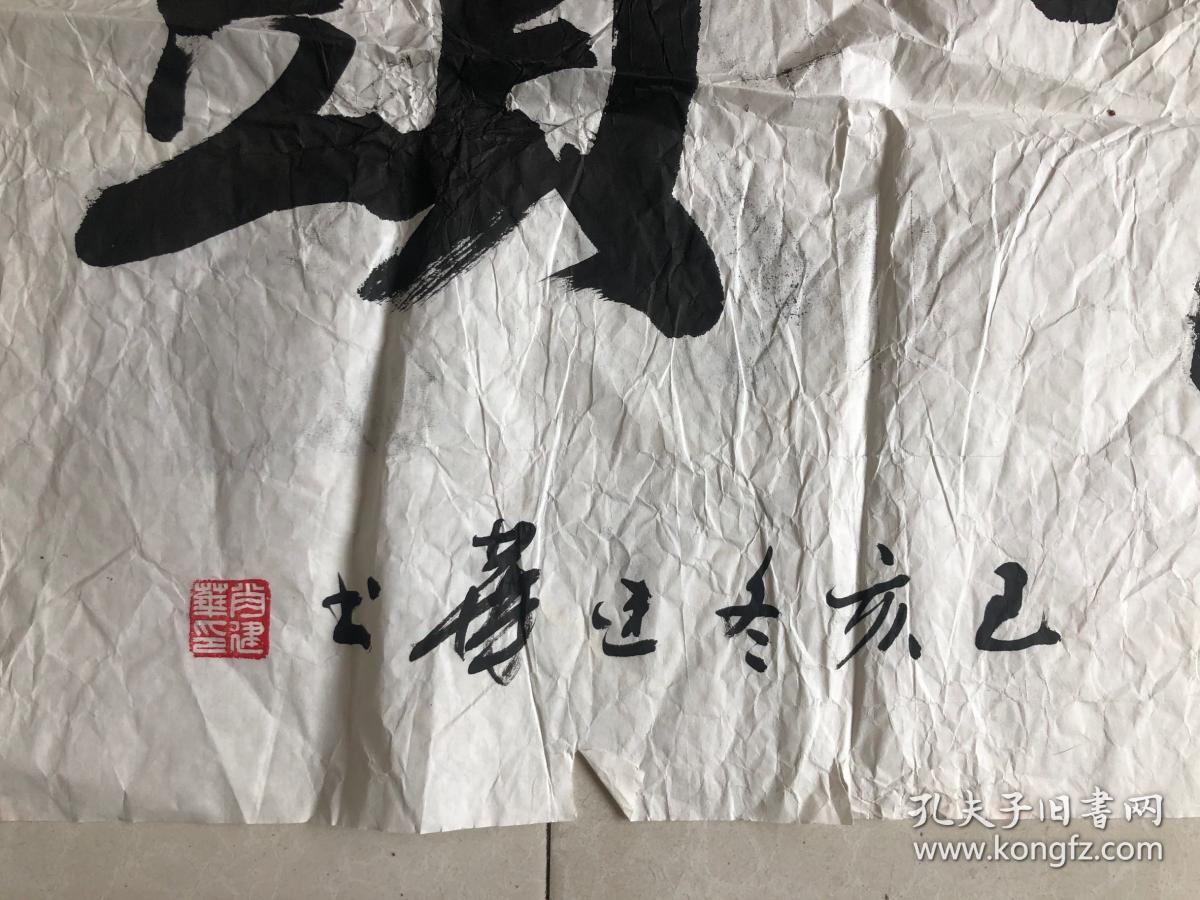 己亥冬建華书
肖建
華印
孔夫子旧書网
www.kongfz.com